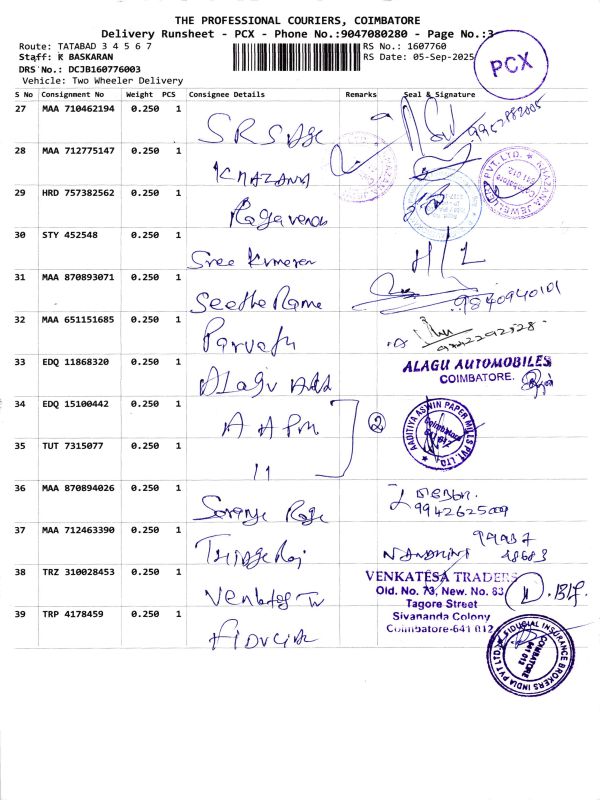 THE PROFESSIONAL COURIERS, COIMBATORE
Delivery Runsheet - PCX - Phone No.:9047080280 - Page No.:3
Route: TATABAD 3 4 5 6 7
RS No.: 1607760
Staff: K BASKARAN
RS Date: 05-Sep-2025
DRS No.: DCJB160776003
Vehicle: Two Wheeler Delivery
PCX
S No Consignment No Weight PCS Consignee Details Remarks Seal & Signature
27 MAA 710462194 0.250 1 SRS Age
28 MAA 712775147 0.250 1 KHAZANA
KHAZANA JEWELLERY PVT. LTD.
29 HRD 757382562 0.250 1 Ragavendra
30 STY 452548 0.250 1 Sree Kumaran H/L
31 MAA 870893071 0.250 1 Seetha Rama 9840940101
32 MAA 651151685 0.250 1 Parvathi
33 EDQ 11868320 0.250 1 Alagu ALAGU AUTOMOBILES
COIMBATORE.
34 EDQ 15100442 0.250 1 A A PM 2
AADITYA ASWIN PAPER MILLS PVT. LTD.
35 TUT 7315077 0.250 1 11
36 MAA 870894026 0.250 1 9942625009
37 MAA 712463390 0.250 1 NANDHINI
38 TRZ 310028453 0.250 1 VENKATESA TRADERS
Old. No. 73, New. No. 83
Tagore Street
Sivananda Colony
Coimbatore-641 012
39 TRP 4178459 0.250 1 FIDUCIA
FIDUCIAL INSURANCE BROKERS INDIA PVT LTD
COIMBATORE 641 012